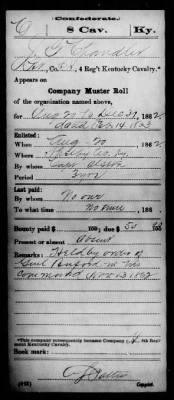 Confederate.
C 8 Cav. Ky.
J. T. Chandler
Co. , 4 Reg't Kentucky Cavalry.*
Appears on
Company Muster Roll
of the organization named above,
for Aug 20 to Dec 31, 1862.
dated Feb 14 1863
Enlisted:
When Aug 20, 1862
Where Shelby Co. Ky.
By whom Capt.
Period 3 yrs
Last paid:
By whom No one
To what time , 186
Bounty paid $ 100; due $ 50 100
Present or absent Absent
Remarks: Held by order of
Genl in his
Command Nov 13 1862
*This company subsequently became Company , 8th Regiment Kentucky Cavalry.
Book mark:
(642) Copyist.